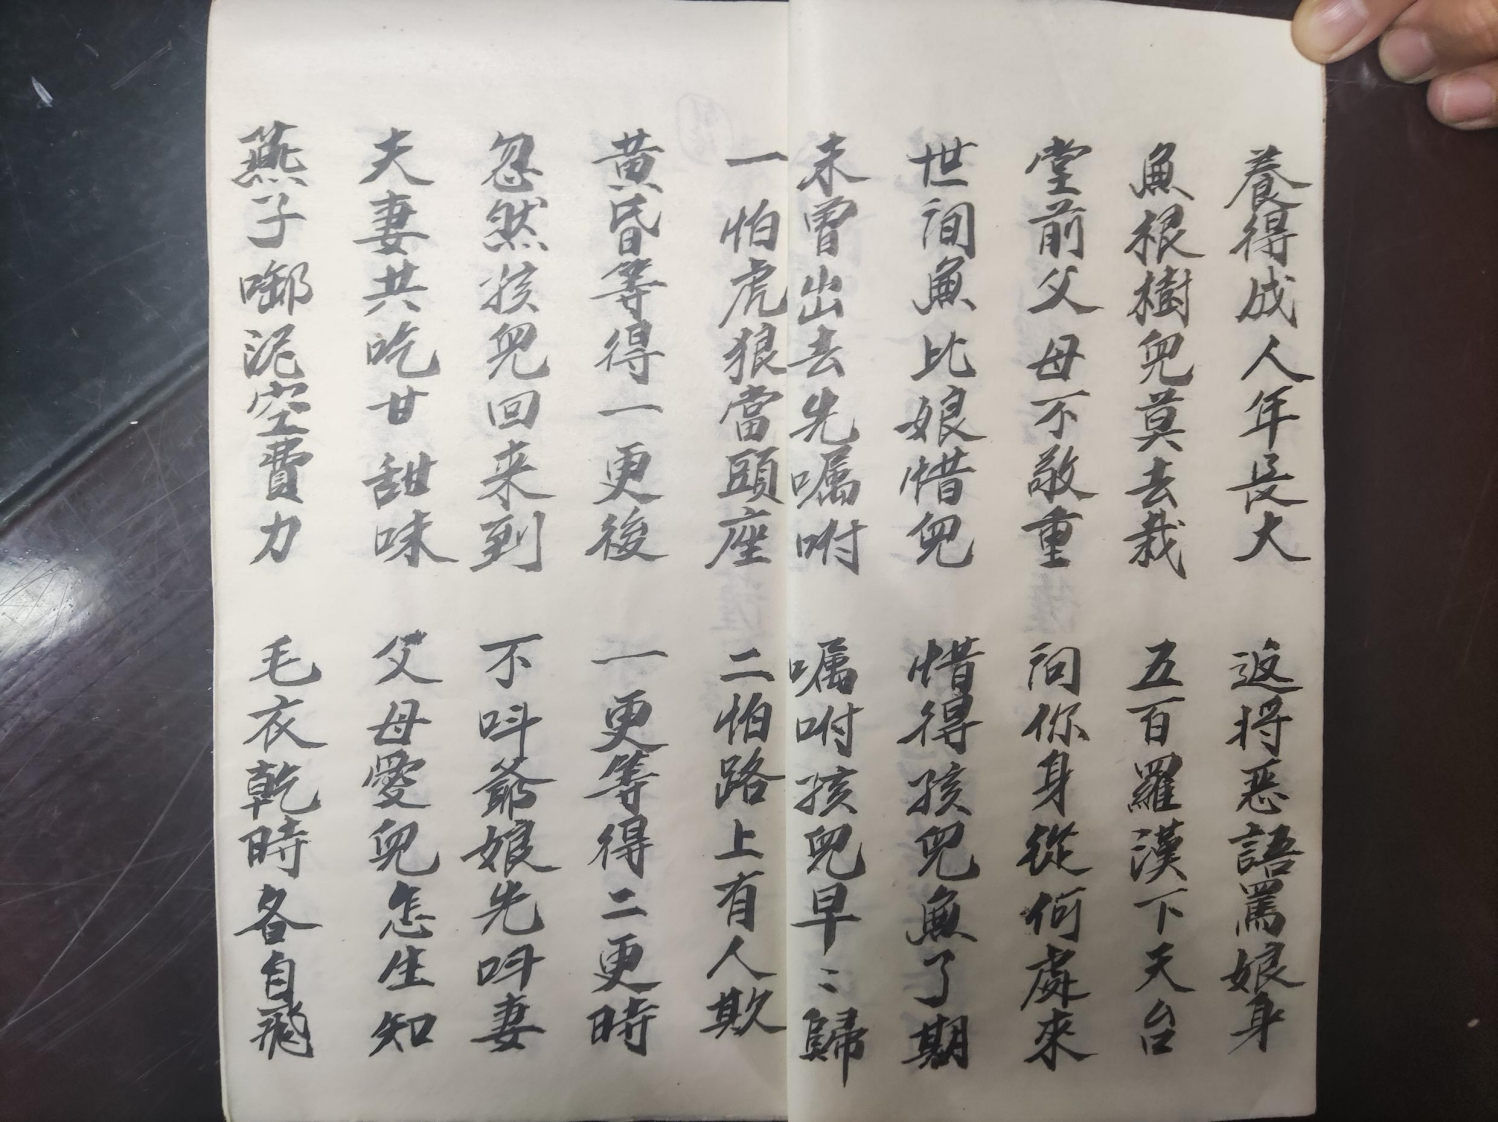 養得成人年長大 返将恶語罵娘身
無根樹兒莫去栽 五百羅漢下天台
堂前父母不敬重 问你身從何處來
世间無比娘惜兒 惜得孩兒無了期
未曾出去先嘱咐 嘱咐孩兒早〻歸
一怕虎狼當頭座 二怕路上有人欺
黄昏等得一更後 一更等得二更時
忽然孩兒回来到 不呌爺娘先呌妻
夫妻共吃甘甜味 父母愛兒怎生知
燕子啣泥空費力 毛衣乾時各自飛